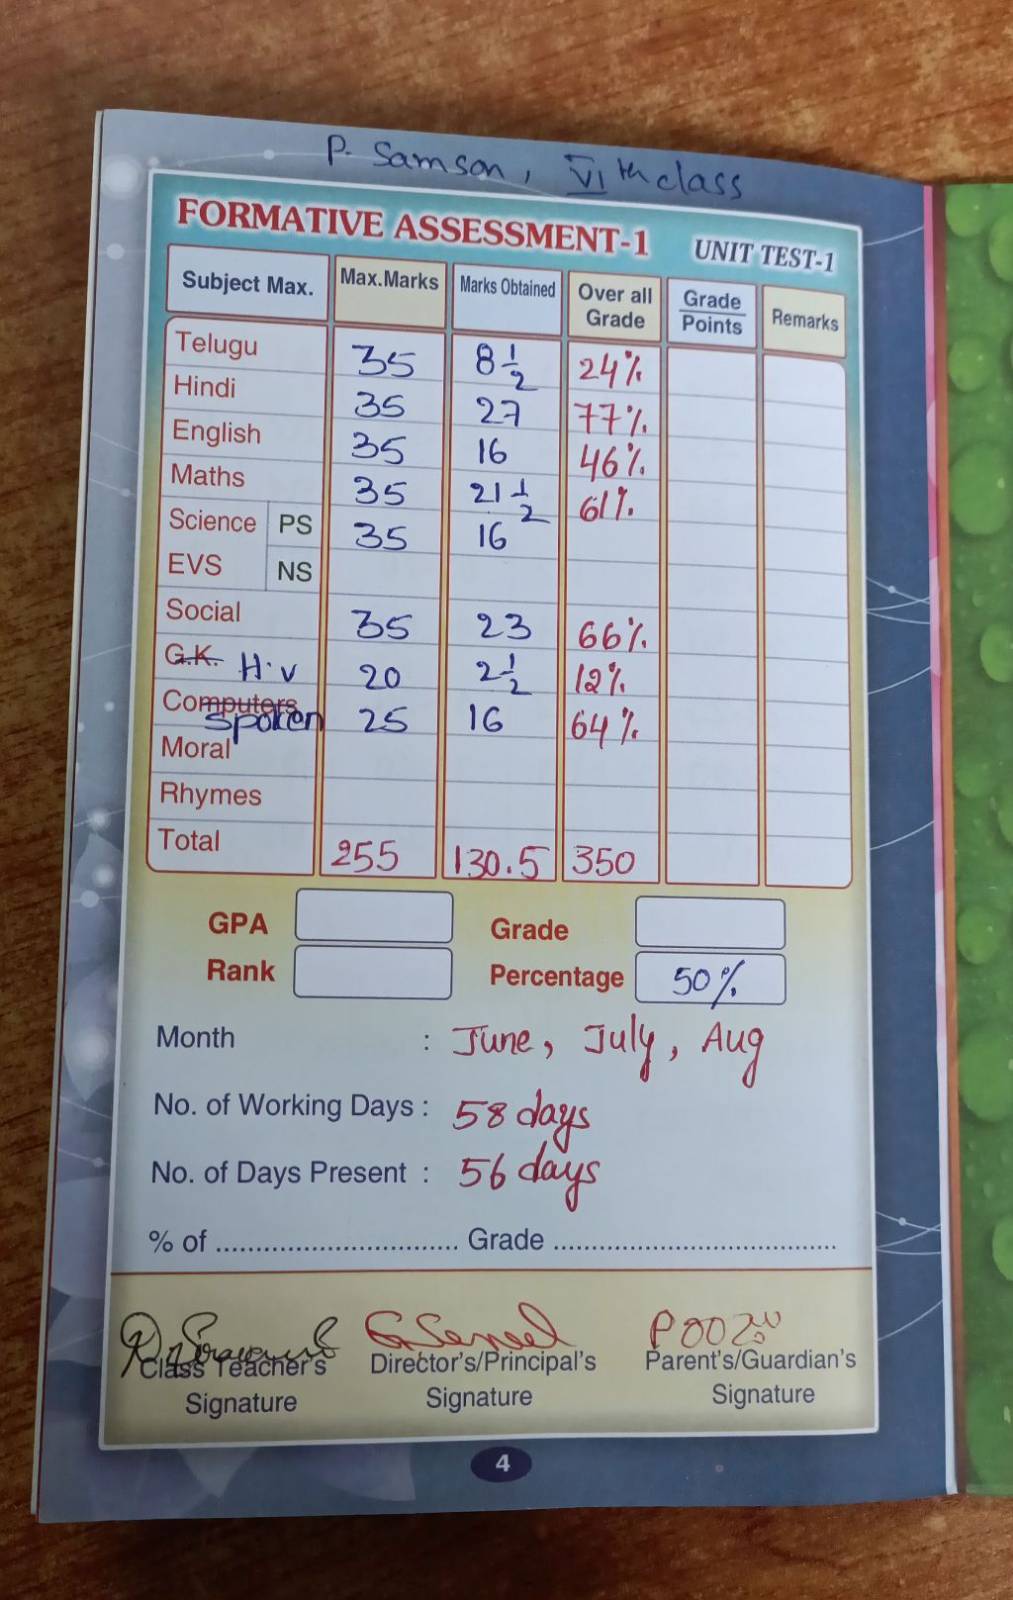 P. Samson, VIth class
FORMATIVE ASSESSMENT-1 UNIT TEST-1
Subject Max. Max.Marks Marks Obtained Over all Grade Grade Points Remarks
Telugu 35 8 1/2 24%
Hindi 35 27 77%
English 35 16 46%
Maths 35 21 1/2 61%
Science PS 35 16
EVS NS
Social 35 23 66%
G.K. H.V 20 2 1/2 12%
Computers spoken 25 16 64%
Moral
Rhymes
Total 255 130.5 350
GPA Grade
Rank Percentage 50%
Month : June, July, Aug
No. of Working Days : 58 days
No. of Days Present : 56 days
% of .............................. Grade ....................................
Class Teacher's Director's/Principal's Parent's/Guardian's
Signature Signature Signature
4